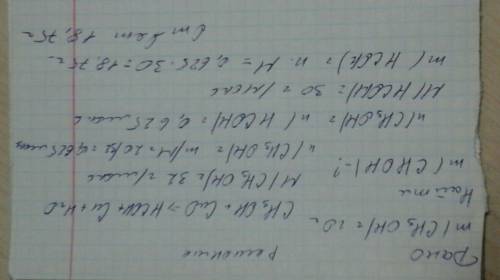 Дано Решение
m(CH₃OH)=20г CH₃OH + CuO → HCOH + Cu + H₂O
Найти M(CH₃OH)= 32 г/моль
m(CHOH)-? n(CH₃OH)= m/M=20/32=0,625моль
n(CH₃OH)= n(HCOH)=0,625моль
M(HCOH)= 30 г/моль
m(HCOH)= n·M= 0,625·30=18,75г
18,75г